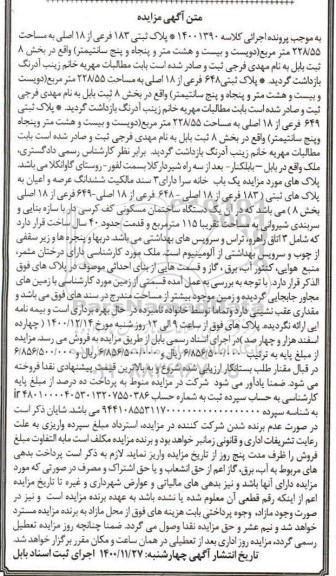 متن آگهی مزایده
به موجب پرونده اجرائی کلاسه ۱۴۰۰۱۳۹۰ * پلاک ثبتی ۱۸۳ فرعی از ۱۸ اصلی به مساحت
۲۲۸/۵۵ متر مربع(دویست و بیست و هشت متر و پنجاه و پنج سانتیمتر) واقع در بخش ۸
ثبت بابل به نام مهدی فرجی ثبت و صادر شده است بابت مطالبات مهریه خانم زینب آدرنگ
بازداشت گردید. * پلاک ثبتی ۶۴۸ فرعی از ۱۸ اصلی به مساحت ۲۲۸/۵۵ متر مربع(دویست
و بیست و هشت متر و پنجاه و پنج سانتیمتر) واقع در بخش ۸ ثبت بابل به نام مهدی فرجی ثبت
و صادر شده است بابت مطالبات مهریه خانم زینب آدرنگ بازداشت گردید. * پلاک ثبتی
۶۴۹ فرعی از ۱۸ اصلی به مساحت ۲۲۸/۵۵ متر مربع(دویست و بیست و هشت متر و پنجاه
و پنج سانتیمتر) واقع در بخش ۸ ثبت بابل به نام مهدی فرجی ثبت و صادر شده است بابت
مطالبات مهریه خانم زینب آدرنگ بازداشت گردید. برابر نظر کارشناس رسمی دادگستری،
ملک واقع در بابل – بابلکنار- بعد از سه راه شیردارکلا بسمت لفور- روستای گاوانکلا می باشد.
پلاک های مورد مزایده یک باب خانه سرا دارای ۳ سند مالکیت ششدانگ عرصه و اعیان به
پلاک های ثبتی (۱۸۳ فرعی از ۱۸ اصلی -۶۴۸ فرعی از ۱۸ اصلی -۶۴۹ فرعی از ۱۸ اصلی
بخش ۸) می باشد که دارای یک دستگاه ساختمان مسکونی کف کرسی دار با سازه بنایی و
سربندی شیروانی به مساحت تقریبا ۱۱۵ مترمربع و قدمت حدود ۴۰ سال ساخت قرار دارد
که شامل ۳ اتاق راهرو، تراس و سرویس های بهداشتی می باشد. دربها و پنجره ها و زیر سقفی
از چوب و سرویس بهداشتی از آلومینیوم است. ملک مورد کارشناسی دارای درختان مثمر،
منبع هوایی، کنتور آب، برق، گاز و قسمت هایی از بنای احداثی موصوف در پلاک های فوق
الذکر قرار دارد. با توجه به بررسی به عمل آمده قسمتی از زمین مورد کارشناسی با زمین های
مجاور جابجایی گردیده و زمین موجود بیشتر از مساحت مندرج در سند های فوق می باشد و
مقداری عقب نشینی دارد و تماما توسط خانواده نامبرده در حال بهره برداری است و بیمه نامه
ایی ارائه نگردیده. پلاک های فوق از ساعت ۹ الی ۱۲ روز شنبه مورخ ۱۴۰۰/۱۲/۱۴ (چهارده
اسفند هزار و چهار صد) در اجرای اسناد رسمی بابل از طریق مزایده به فروش می رسد. مزایده
از مبلغ پایه به ترتیب
در قبال مقدار طلب بستانکار ارزیابی شده شروع و به بالاترین قیمت پیشنهادی نقدا فروخته
می شود. ضمنا یادآور می شود شرکت در مزایده منوط به پرداخت ده درصد از مبلغ پایه
کارشناسی به حساب سپرده ثبت به شماره حساب
به شناسه سپرده می باشد. شایان ذکر است
در صورت عدم برنده شدن شرکت کننده در مزایده، استرداد مبلغ سپرده واریزی به علت
رعایت تشریفات اداری و قانونی زمانبر خواهد بود و برنده مزایده مکلف است مابه التفاوت مبلغ
فروش را ظرف مدت پنج روز از تاریخ مزایده واریز نماید. لازم به ذکر است پرداخت بدهی
های مربوط به آب، برق، گاز اعم از حق انشعاب و یا حق اشتراک و مصرف در صورتی که مورد
مزایده دارای آنها باشد و نیز بدهی های مالیاتی و عوارض شهرداری و غیره تا تاریخ مزایده
اعم از اینکه رقم قطعی آن معلوم شده یا نشده باشد به عهده برنده مزایده است و نیز در
صورت وجود مازاد، وجوه پرداختی بابت هزینه های فوق از محل مازاد به برنده مزایده مسترد
خواهد شد و نیم عشر و حق مزایده نقدا وصول می گردد. ضمنا چنانچه روز مزایده تعطیل
رسمی گردد، مزایده روز اداری بعد از تعطیلی در همان ساعت و مکان مقرر برگزار خواهد شد.
تاریخ انتشار آگهی چهارشنبه: ۱۴۰۰/۱۱/۲۷ اجرای ثبت اسناد بابل